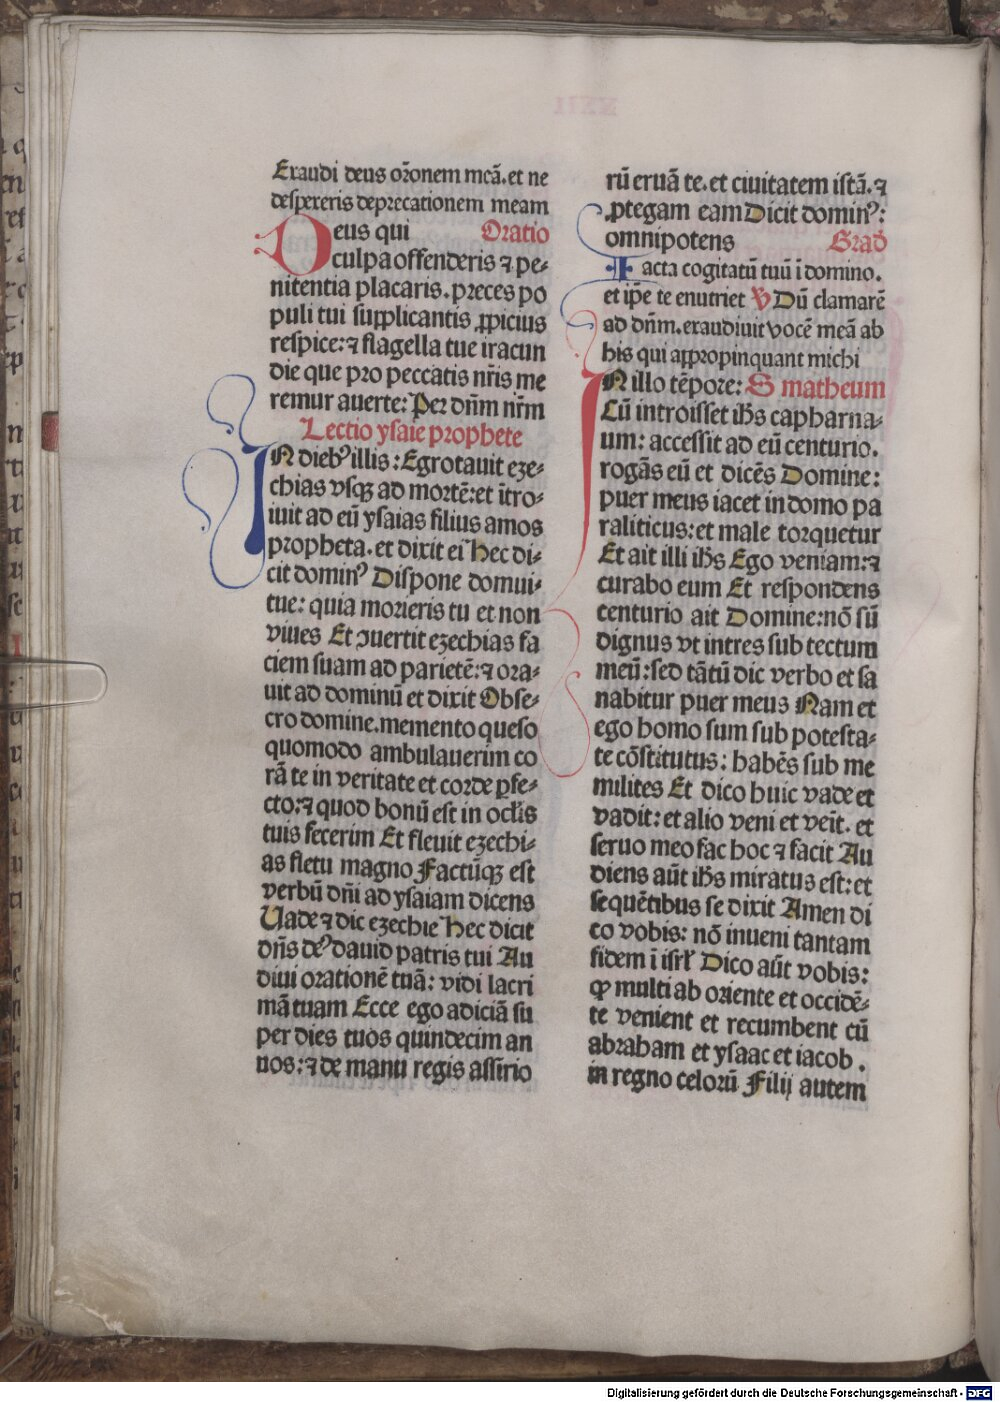 Exaudi deus or̃onem meã. et ne
despexeris deprecationem meam
Deus qui Oratio
culpa offenderis ⁊ pe⸗
nitentia placaris. preces po
puli tui supplicantis ꝓpicius
respice: ⁊ flagella tue iracun
die que pro peccatis nr̃is me
remur auerte: Per dñm nr̃m
Lectio ysaie prophete
IN dieb⁹ illis: Egrotauit eze⸗
chias vsqꝫ ad mortẽ: et ĩtro⸗
iuit ad eũ ysaias filius amos
propheta. et dixit ei Hec di⸗
cit domin⁹ Dispone domui⸗
tue: quia morieris tu et non
viues Et ↄuertit ezechias fa
ciem suam ad parietẽ: ⁊ ora⸗
uit ad dominũ et dixit Obse⸗
cro domine. memento queso
quomodo ambulauerim co
rã te in veritate et corde ꝑfe⸗
cto: ⁊ quod bonũ est in ocl̃is
tuis fecerim Et fleuit ezechi⸗
as fletu magno Factũqꝫ est
verbũ dñi ad ysaiam dicens
Vade ⁊ dic ezechie Hec dicit
dñs de⁹ dauid patris tui Au
diui orationẽ tuã: vidi lacri
mã tuam Ecce ego adiciã su
per dies tuos quindecim an
nos: ⁊ de manu regis assirio
rũ eruã te. et ciuitatem istã. ⁊
ꝓtegam eam Dicit domin⁹:
omnipotens Grad̃
Iacta cogitatũ tuũ ĩ domino.
et ip̃e te enutriet ℣ Dũ clamarẽ
ad dñm. exaudiuit vocẽ meã ab
his qui appropinquant michi
IN illo tẽpore: S matheum
Cũ introisset ih̃s capharna⸗
um: accessit ad eũ centurio.
rogãs eũ et dicẽs Domine:
puer meus iacet in domo pa
raliticus: et male torquetur
Et ait illi ih̃s Ego veniam: ⁊
curabo eum Et respondens
centurio ait Domine: nõ sũ
dignus vt intres sub tectum
meũ: sed tãtũ dic verbo et sa
nabitur puer meus Nam et
ego homo sum sub potesta⸗
te cõstitutus: habẽs sub me
milites Et dico huic vade et
vadit: et alio veni et veñit. et
seruo meo fac hoc ⁊ facit Au
diens aũt ih̃s miratus est: et
sequẽtibus se dixit Amen di
co vobis: nõ inueni tantam
fidem ĩ isrl̃ Dico aũt vobis:
ꝙ multi ab oriente et occidẽ⸗
te venient et recumbent cũ
abraham et ysaac et iacob.
in regno celorũ Filij autem
Digitalisierung gefördert durch die Deutsche Forschungsgemeinschaft - DFG